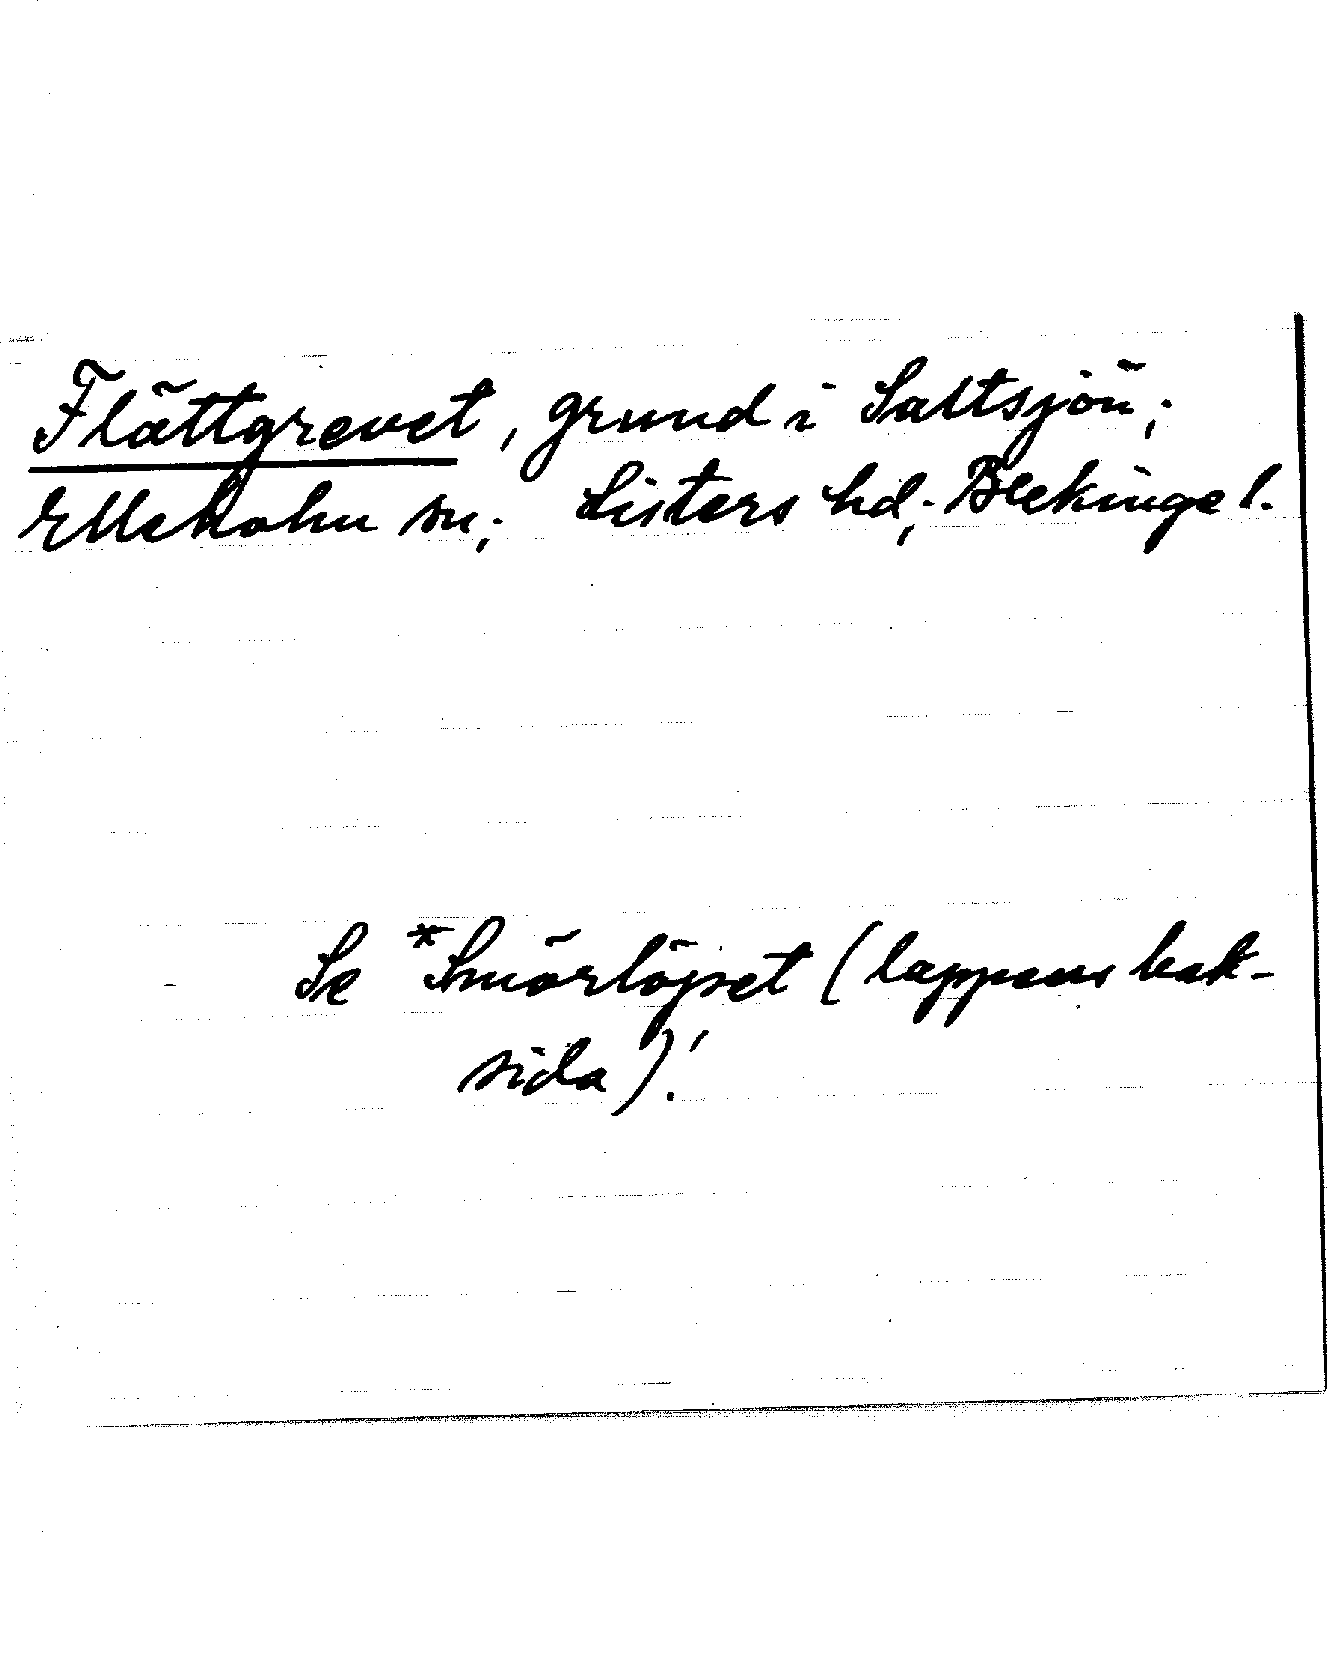 Flättgrevet, grund i Saltsjön;
Elleholm sn; Listers hd; Blekinge l.
Se *Smörlöjset (lappens bak-
sida)!